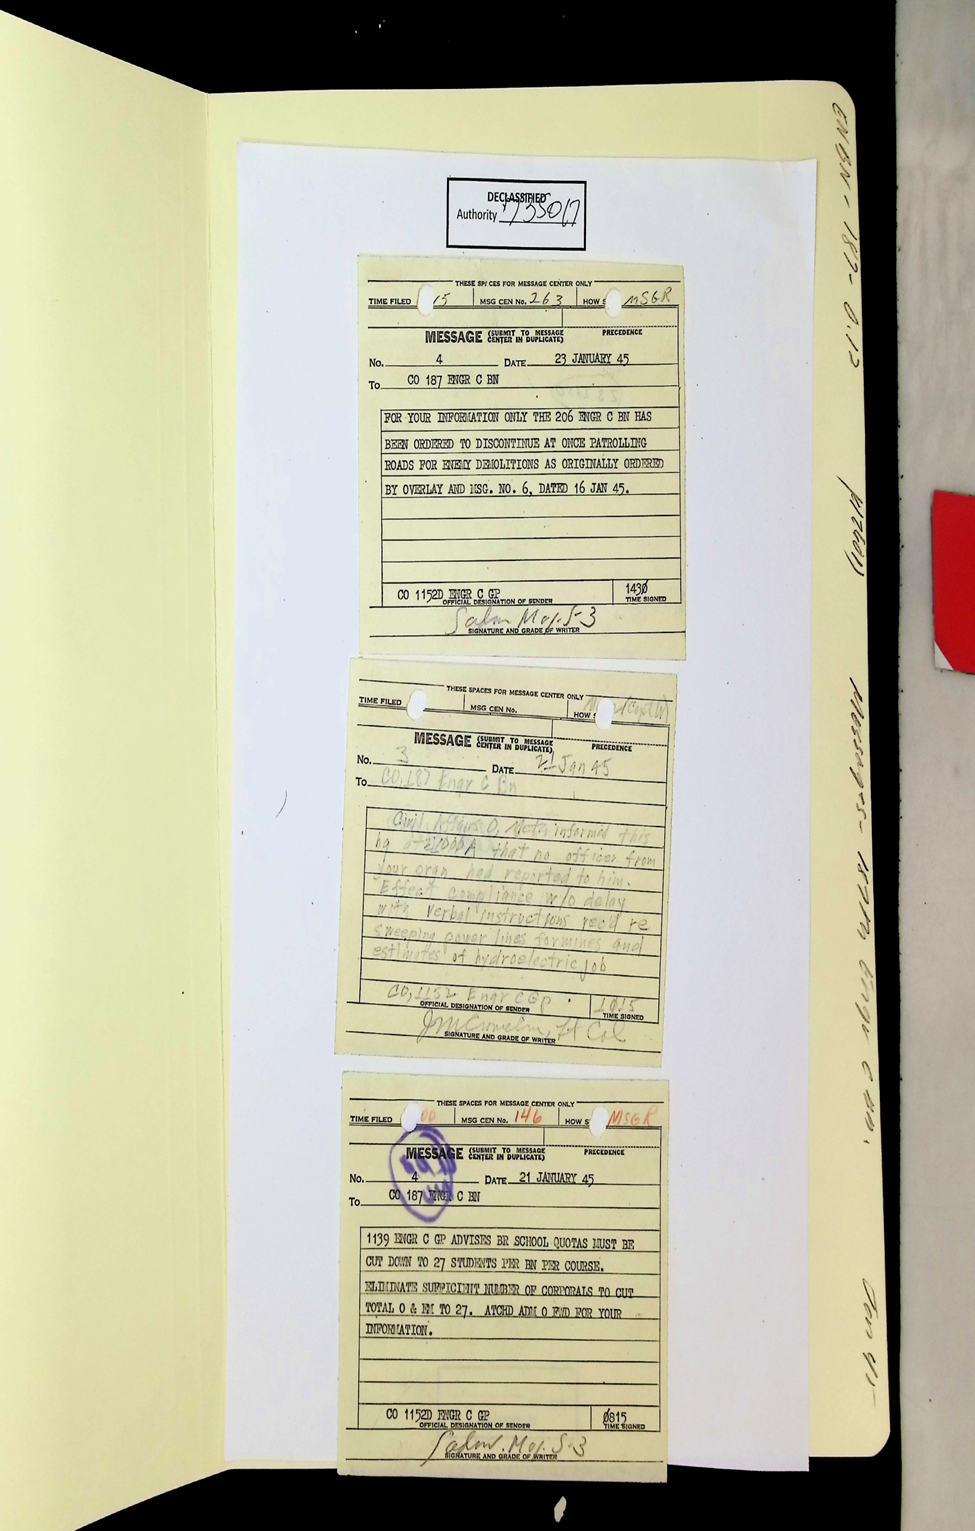 DECLASSIFIED
Authority 735017
THESE SPACES FOR MESSAGE CENTER ONLY
TIME FILED 15 MSG CEN No. 263 HOW S MSGR
MESSAGE (SUBMIT TO MESSAGE CENTER IN DUPLICATE) PRECEDENCE
No. 4 DATE 23 JANUARY 45
To CO 187 ENGR C BN
FOR YOUR INFORMATION ONLY THE 206 ENGR C BN HAS
BEEN ORDERED TO DISCONTINUE AT ONCE PATROLLING
ROADS FOR ENEMY DEMOLITIONS AS ORIGINALLY ORDERED
BY OVERLAY AND MSG. NO. 6, DATED 16 JAN 45.
CO 1152D ENGR C GP 1430
OFFICIAL DESIGNATION OF SENDER TIME SIGNED
Maj. S-3
SIGNATURE AND GRADE OF WRITER
THESE SPACES FOR MESSAGE CENTER ONLY
TIME FILED MSG CEN No. HOW S
MESSAGE (SUBMIT TO MESSAGE CENTER IN DUPLICATE) PRECEDENCE
No. 3 DATE 21 Jan 45
To CO, 187 Engr C Bn
Civil Affairs O, Metz informed this
hq at that no officer from
your orgn had reported to him.
Effect compliance w/o delay
with verbal instructions recd re
sweeping power lines for mines and
estimates of hydroelectric job
CO, 1152 Engr C Gp 1015
OFFICIAL DESIGNATION OF SENDER TIME SIGNED
Lt Col
SIGNATURE AND GRADE OF WRITER
THESE SPACES FOR MESSAGE CENTER ONLY
TIME FILED 00 MSG CEN No. 146 HOW S MSGR
MESSAGE (SUBMIT TO MESSAGE CENTER IN DUPLICATE) PRECEDENCE
No. 4 DATE 21 JANUARY 45
To CO 187 ENGR C BN
1139 ENGR C GP ADVISES BR SCHOOL QUOTAS MUST BE
CUT DOWN TO 27 STUDENTS PER BN PER COURSE.
ELIMINATE SUFFICIENT NUMBER OF CORPORALS TO CUT
TOTAL O & EM TO 27. ATCHD ADM O FWD FOR YOUR
INFORMATION.
CO 1152D ENGR C GP 0815
OFFICIAL DESIGNATION OF SENDER TIME SIGNED
Maj. S-3
SIGNATURE AND GRADE OF WRITER
ENBN-187-0.13
Messages-187th Engr C Bn.
Jan 45